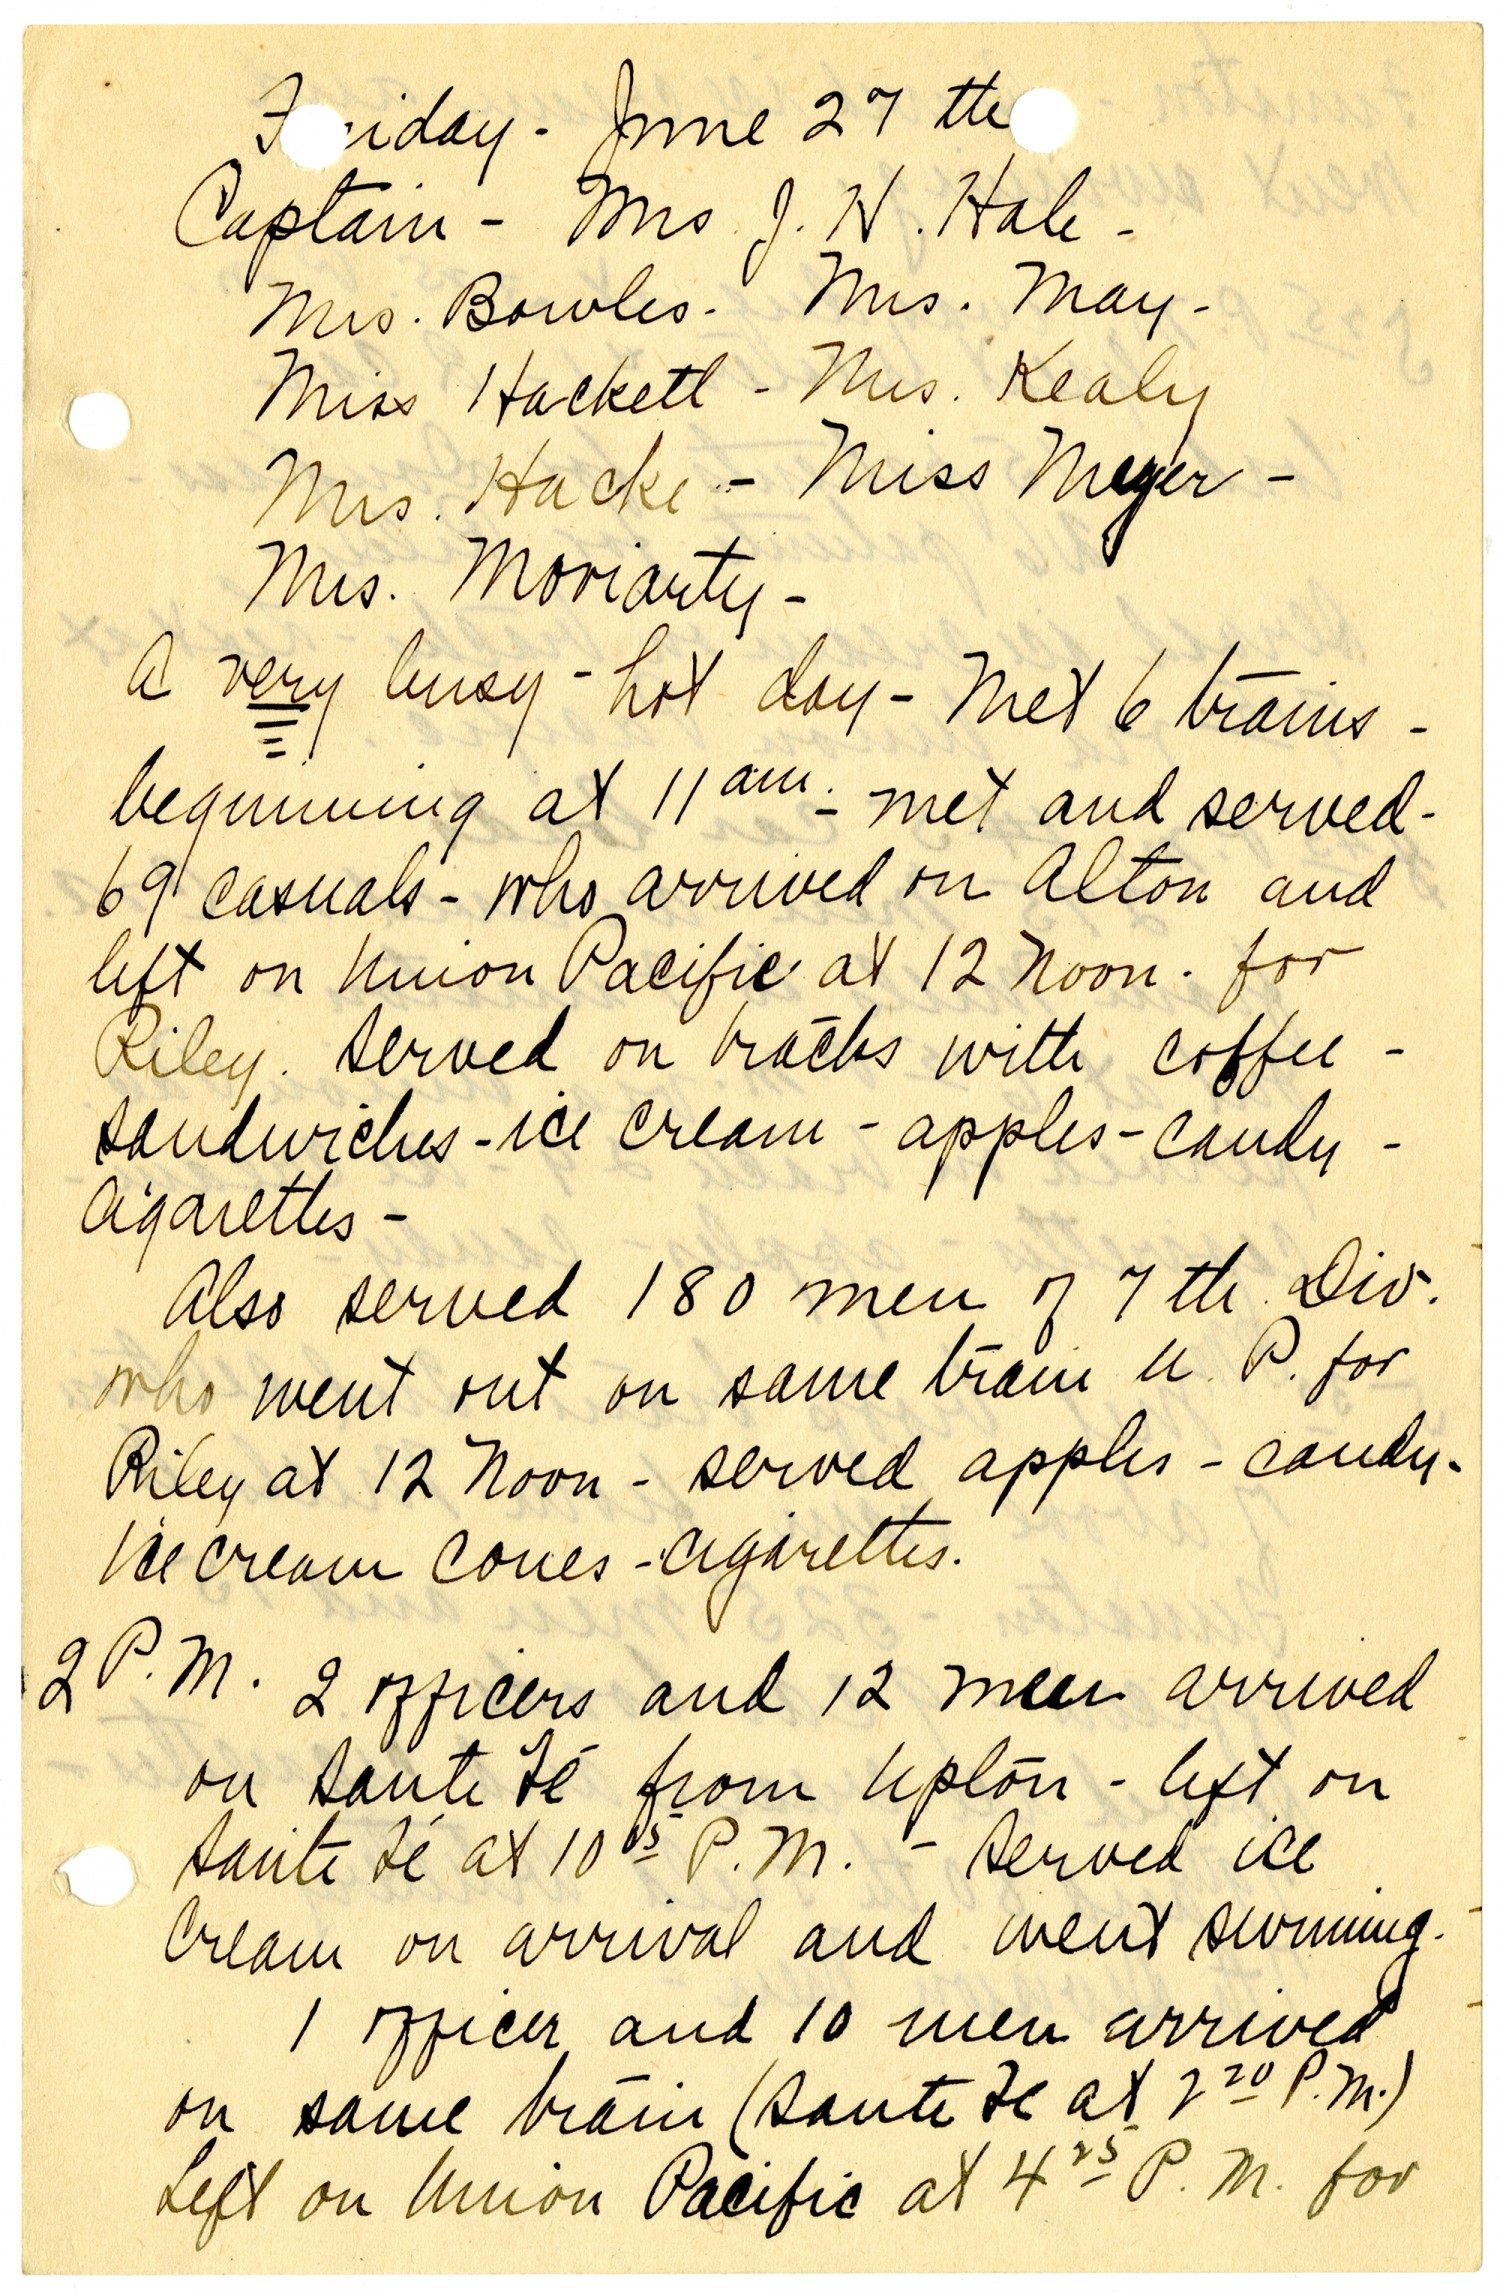 Friday - June 27 th
Captain - Mrs J. H. Hale -
Mrs. Bowles - Mrs. May -
Miss Hackett - Mrs. Kealy
Mrs. Hacke - Miss Meyer -
Mrs. Moriarty -
A very busy - hot day - Met 6 trains -
beginning at 11 am. - met and served -
69 casuals - who arrived on Alton and
left on Union Pacific at 12 Noon. for
Riley. Served on tracks with coffee -
sandwiches - ice cream - apples - candy -
cigarettes -
Also served 180 men of 7 th Div.
who went out on same train U. P. for
Riley at 12 Noon - served apples - candy -
ice cream cones - cigarettes.
2 P.M. 2 officers and 12 men arrived
on Sante Fé from Upton - left on
Sante Fé at 10 05 P.M. - Served ice
cream on arrival and went swimming.
1 officer and 10 men arrived
on same train (Sante Fe at 2 20 P.M.)
Left on Union Pacific at 4 25 P.M. for